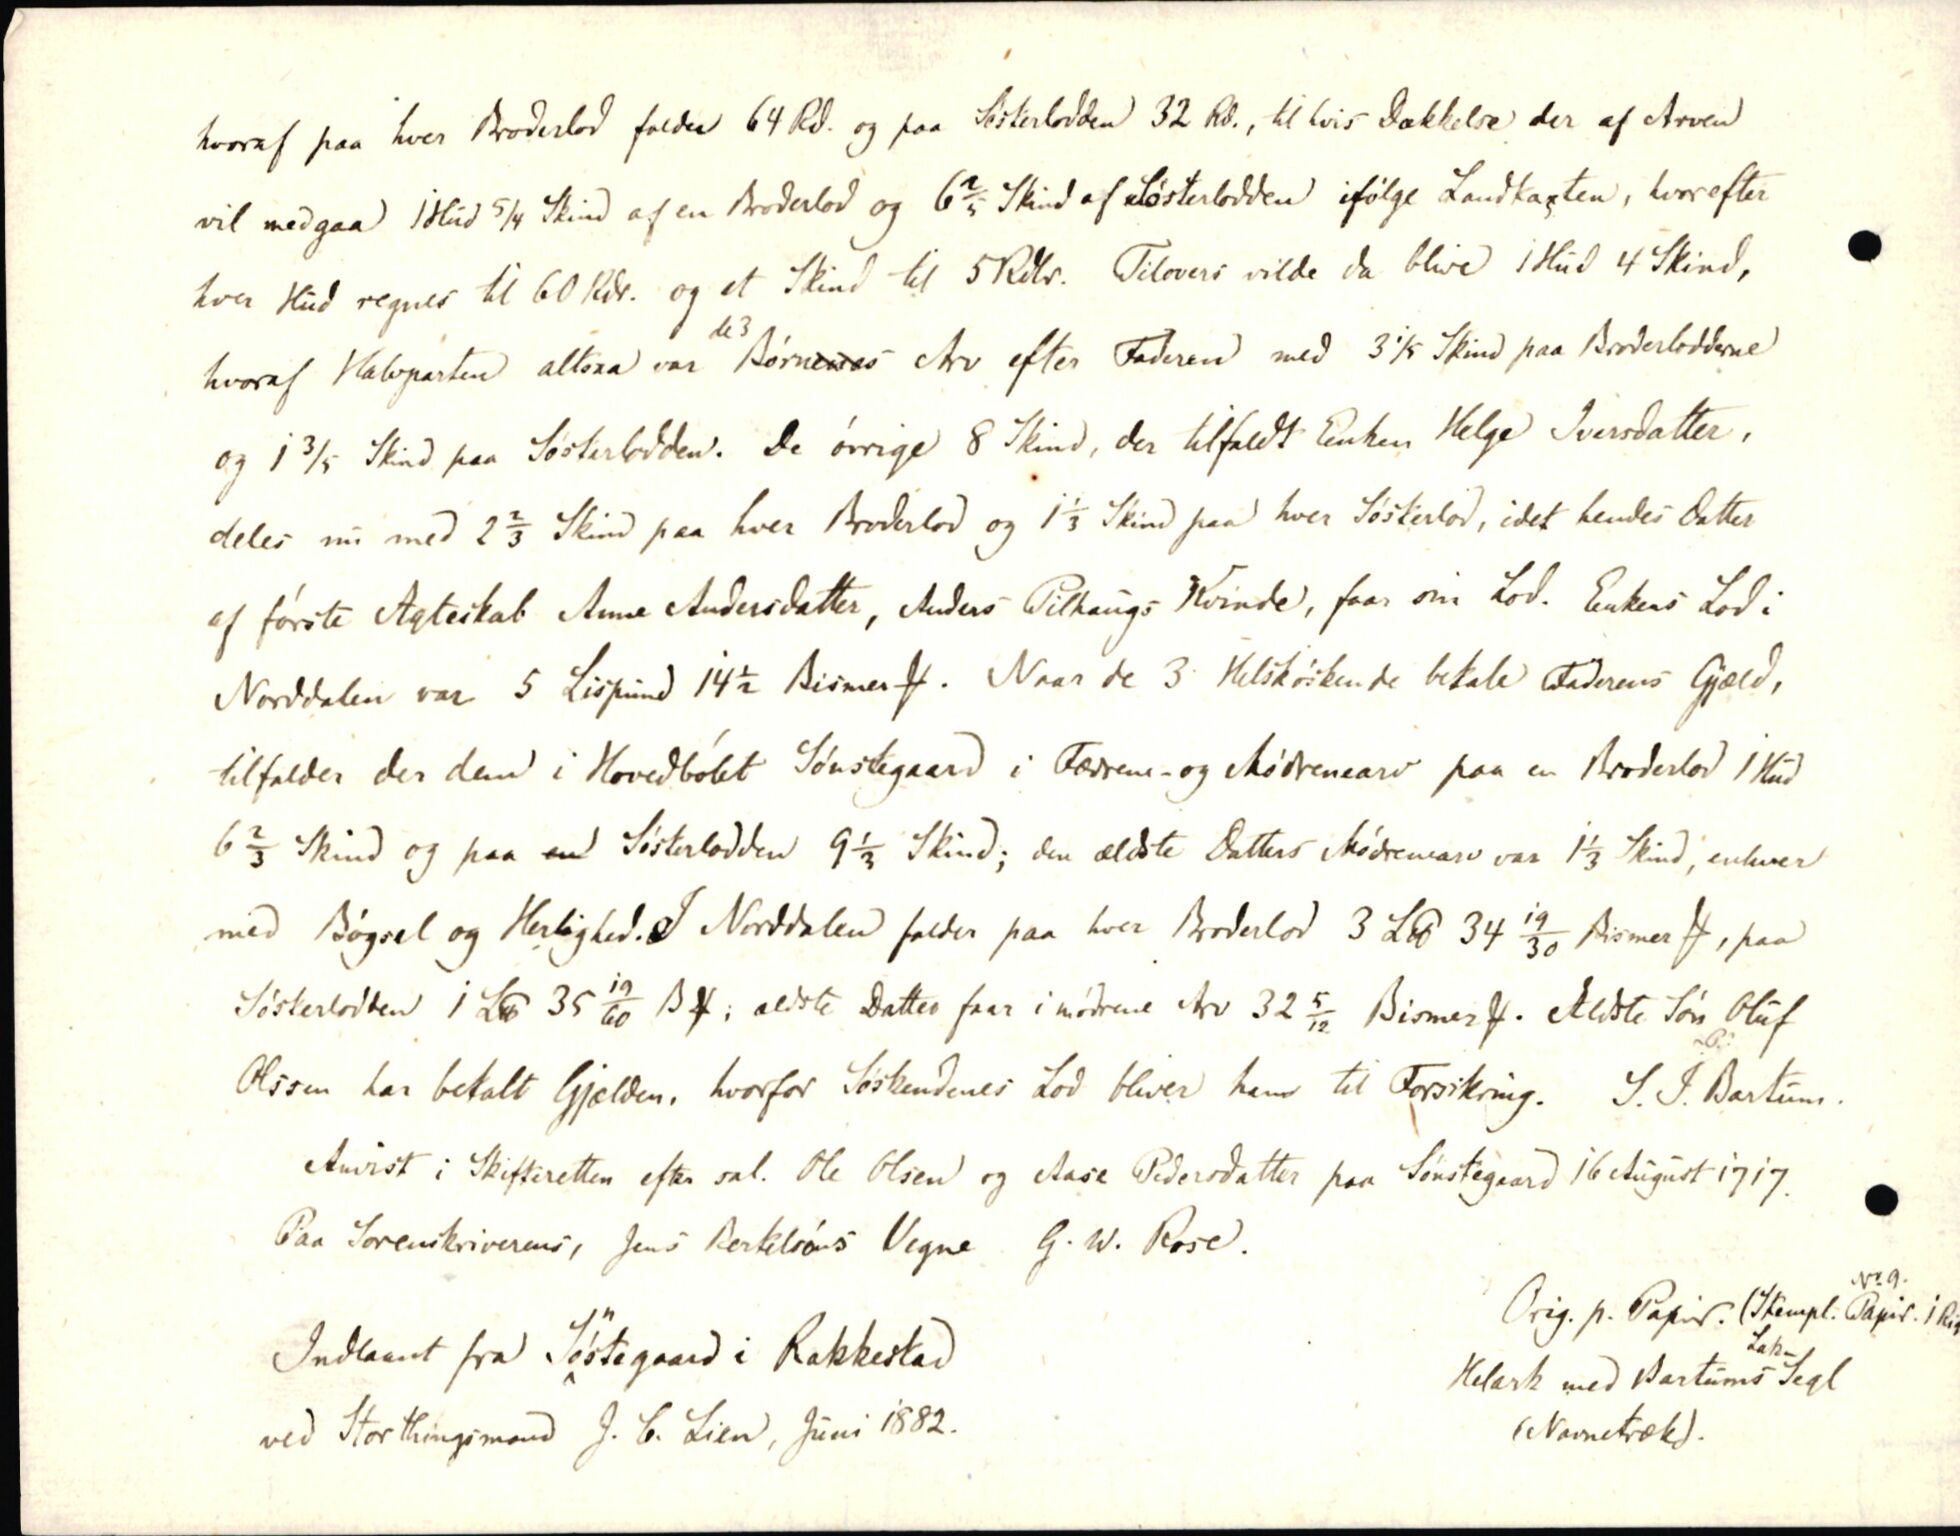 hvoraf paa hver Broderlod falder 64 Rd. og paa Søsterlodden 32 Rd., til hvis Dækkelse der af Arven
vil medgaa 1 Hud 5/4 Skind af en Broderlod og 6 2/5 Skind af Søsterlodden ifølge Landtaxten, hvorefter
hver Hud regnes til 60 Rdr. og et Skind til 5 Rdlr. Tilovers vilde da blive 1 Hud 4 Skind,
hvoraf Halvparten altsaa var de 3 Børns Arv efter Faderen med 3 1/5 Skind paa Broderlodderne
og 1 3/5 Skind paa Søsterlodden. De øvrige 8 Skind, der tilfaldt Enken Helge Iversdatter,
deles nu med 2 2/3 Skind paa hver Broderlod og 1 1/3 Skind paa hver Søsterlod, idet hendes Datter
af første Ægteskab Anne Andersdatter, Anders Pilhaugs Kvinde, faar sin Lod. Enkens Lod i
Norddalen var 5 Lispund 14 1/2 Bismer ℔. Naar de 3 Helsøskende betale Faderens Gjæld,
tilfalder der dem i Hovedbølet Sønstegaard i Fædrene- og Mødrenearv paa en Broderlod 1 Hud
6 2/3 Skind og paa Søsterlodden 9 1/3 Skind; den ældste Datters Mødrenearv var 1 1/3 Skind, enhver
med Bøgsel og Herlighed. I Norddalen falder paa hver Broderlod 3 L℔ 34 19/30 Bismer ℔, paa
Søsterlodden 1 L℔ 35 19/60 B ℔; ældste Datter faar i mødrene Arv 32 5/12 Bismer ℔. Ældste Søn Oluf
Olssen har betalt Gjælden, hvorfor Søskendenes Lod bliver ham til Forsikring. S. J. Bartum.
Anvist i Skifteretten efter sal. Ole Olsen og Aase Pedersdatter paa Sønstegaard 16 August 1717.
Paa Sorenskriverens, Jens Bertelsøns Vegne G. W. Rose.
Indlaant fra Sønstegaard i Rakkestad
ved Storthingsmand J. C. Lien, Juni 1882.
Orig. p. Papir. (Stempl. Papir. No 9. 1 Rix
Helark med Bartums Lak-Segl
(Navnetræk).